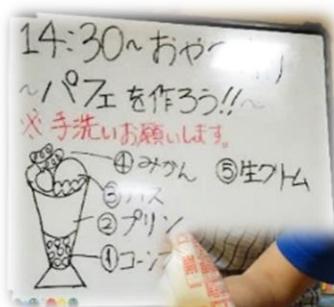 14:30～おやつ
～パフェを作ろう!!～
※手洗いお願いします。
④みかん ⑤生クリーム
②プリン
①コーン